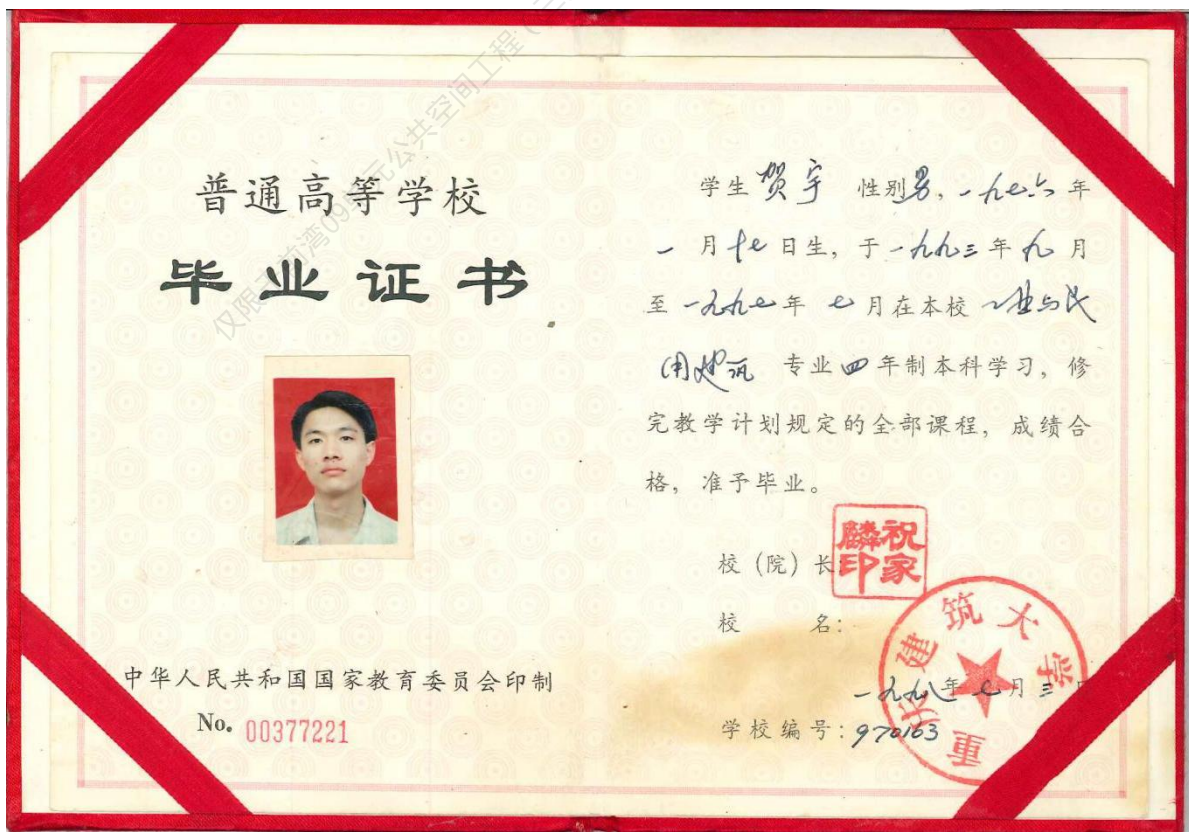 普通高等学校
毕业证书
中华人民共和国国家教育委员会印制
No. 00377221
学生 贺宇 性别男，一九七六年
一月十七日生，于一九九三年九月
至一九九七年七月在本校工业与民
用建筑 专业四年制本科学习，修
完教学计划规定的全部课程，成绩合
格，准予毕业。
校（院）长
祝家麟印
校 名：
重庆建筑大学
一九九八年七月三日
学校编号：970163
仅限
元公共空间工程